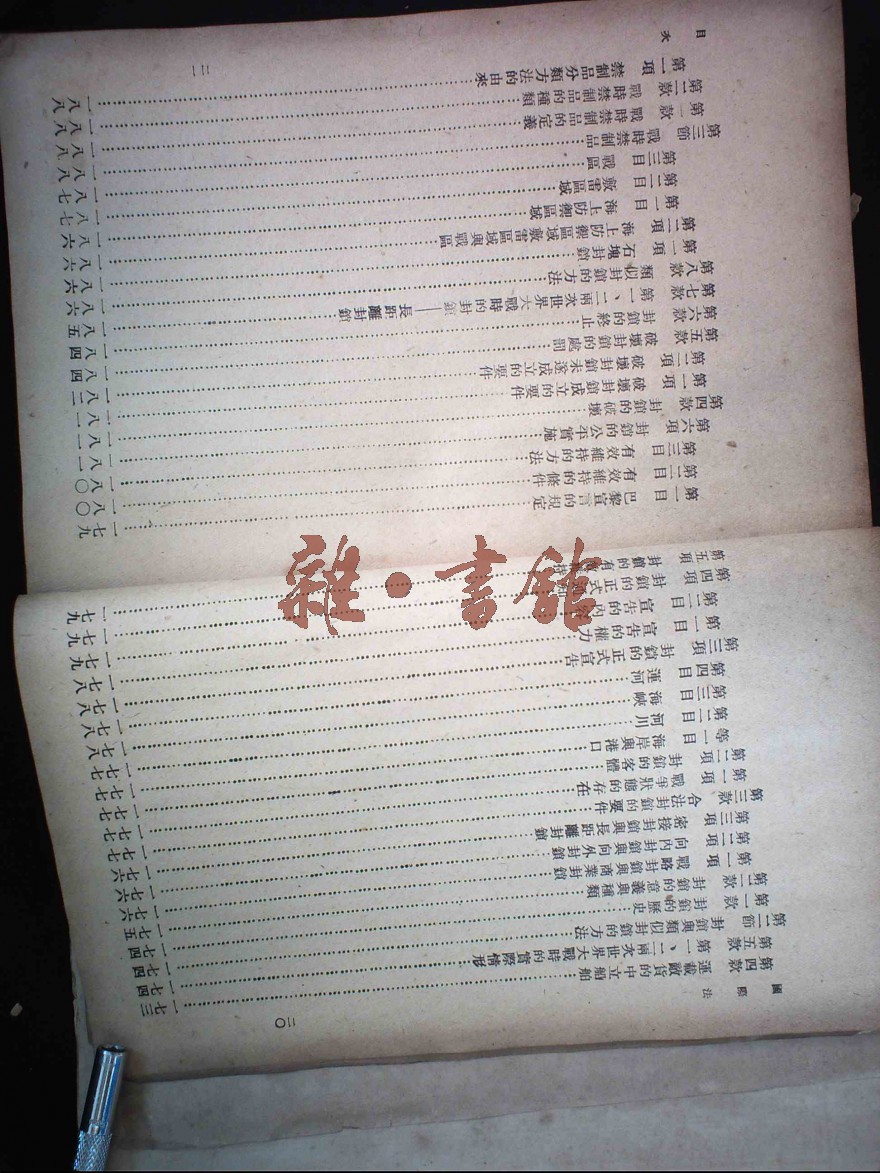 國際法
二〇
第四款 運載敵貨的中立船舶……一七三
第五款 第一、二兩次世界大戰時的實際情形……一七四
第二節 封鎖與類似封鎖的方法……一七四
第一款 封鎖的歷史……一七四
第二款 封鎖的意義與種類……一七五
第一項 戰略封鎖與商業封鎖……一七六
第二項 向內封鎖與向外封鎖……一七六
第三項 密接封鎖與長距離封鎖……一七六
第三款 合法封鎖的要件……一七七
第一項 戰爭狀態的存在……一七七
第二項 封鎖的客體……一七七
等一目 海岸與港口……一七七
第二目 河川……一七七
第三目 海峽……一七八
第四目 運河……一七八
第三項 封鎖的正式宣告……一七八
第一目 宣告的權力……一七八
第二目 宣告的內容……一七九
第四項 封鎖的正式通知……一七九
第五項 封鎖的有效……一七九
目次
二一
第一目 巴黎宣言的規定……一七九
第二目 有效維持的條件……一八〇
第三目 有效維持的方法……一八〇
第六項 封鎖的公平實施……一八一
第四款 封鎖的破壞……一八一
第一項 破壞封鎖成立的要件……一八一
第二項 破壞封鎖未遂成立的要件……一八二
第五款 破壞封鎖的處罰……一八四
第六款 封鎖的終止……一八四
第七款 第一、二兩次世界大戰時的封鎖——長距離封鎖……一八五
第八款 類似封鎖的方法……一八六
第一項 石塊封鎖……一八六
第二項 海上防禦區域敷雷區域與戰區……一八六
第一目 海上防禦區域……一八六
第二目 敷雷區域……一八七
第三目 戰區……一八七
第三節 戰時禁制品……一八八
第一款 戰時禁制品的定義……一八八
第二款 戰時禁制品的種類……一八八
第一項 禁制品分類方法的由來……一八八
雜·書館